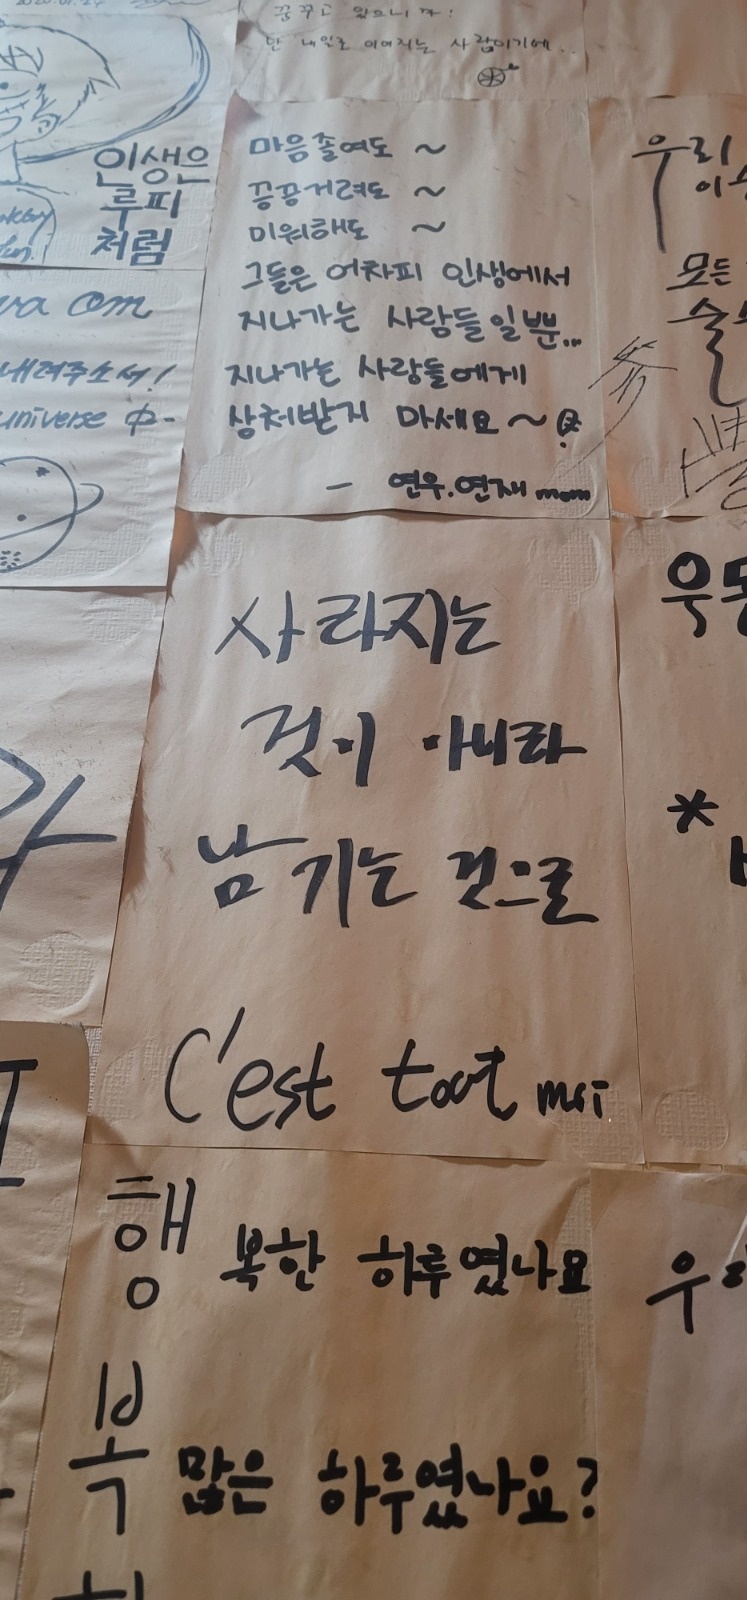 2020.01.24
꿈꾸고 있으니까!
단 내일로 이어지는 사람이기에..
인생은
루피
처럼
마음졸여도 ~
끙끙거려도 ~
미워해도 ~
그들은 어차피 인생에서
지나가는 사람들일뿐...
지나가는 사람들에게
상처받지 마세요 ~
- 연우.연재 mom
우리
모든
술
va om
내려주소서!
universe 中-
사라지는
것이 아니라
남기는 것으로
C'est tout
행 복한 하루였나요
복 많은 하루였나요?